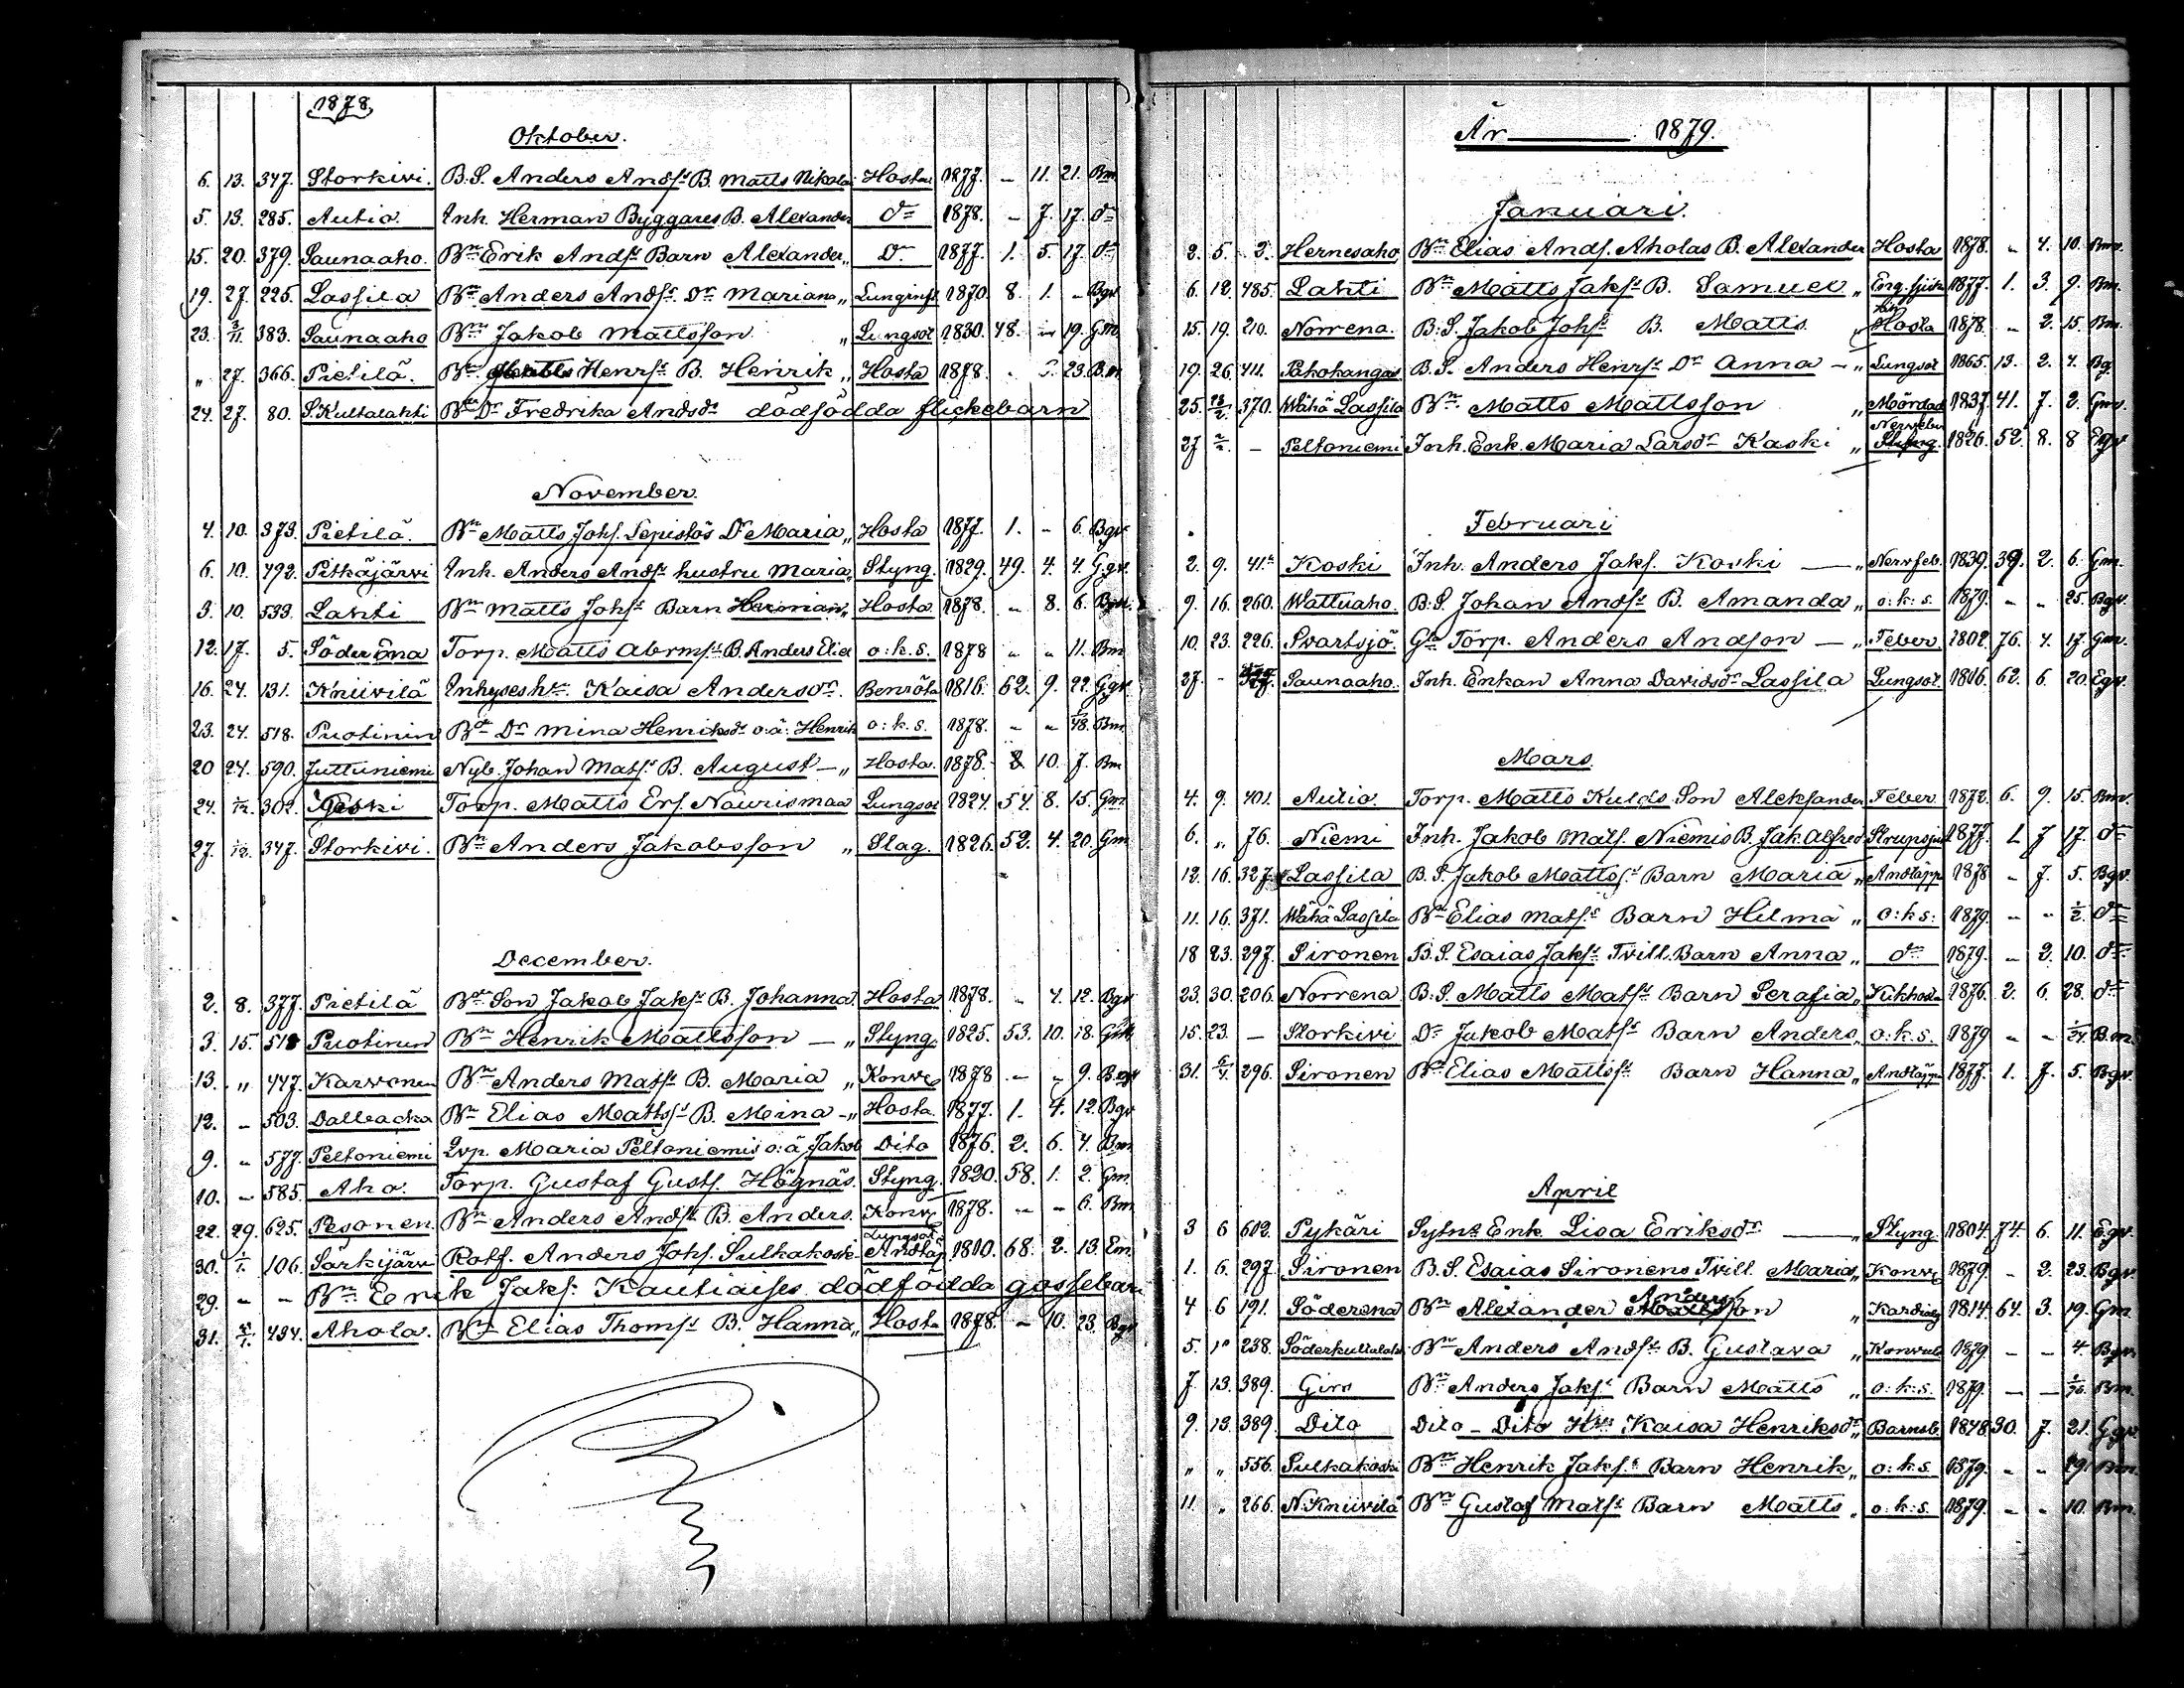 1878
Oktober.
6. 13. 347. Storkivi. B.S. Anders Andsˢ B. Matts Nikolai Hosta 1877. - 11. 21. Bm
5. 13. 285. Autio. Inh. Herman Byggares B. Alexander dº 1878. - 7. 17. dº
15. 20. 379. Saunaaho. Bⁿ Erik Andsˢ Barn Alexander „ Dº 1877. 1. 5. 17. dº
19. 27. 225. Lassila Bⁿ Anders Andsˢ Dr Mariana „ Lunginfl 1870. 8. 1. - Bgv
23. 3/11. 383. Saunaaho Bⁿ Jakob Mattsson „ Lungsot 1830. 48. - 19. Gm.
„ 27. 366. Pietilä. Bⁿ Henrsˢ B. Henrik „ Hosta 1878. - 23. Bm
24. 27. 80. S.Kultalahti Bⁿ Dr Fredrika Andsdr dödfödda flickebarn
November.
4. 10. 373. Pietilä. Bⁿ Matts Johs. Lepistös Dr Maria „ Hosta 1877. 1. - 6. Bgv
6. 10. 492. Pitkäjärvi Inh. Anders Andsˢ hustru Maria „ Styng. 1829. 49. 4. 4. Ggv.
3. 10. 533. Lahti Bⁿ Matts Johsˢ Barn Herman „ Hosta 1878. - 8. 6. Bgv.
12. 17. 5. Söderena Torp. Matts Abrmsˢ B. Anders Elid o:k.s. 1878 „ „ 11. Bm
16. 24. 131. Kniivilä Inhyseshⁿ Kaisa Andersdr. Benröta 1816. 62. 9. 22. Ggv.
23. 24. 518. Puotinin Bᵈ Dr Mina Henriksdr o:ä: Henrik o:k.s. 1878. - - 1/48. Bm.
20 24. 590. Juttuniemi Nyb. Johan Matsˢ B. August - „ Hosta. 1878. - 10. 7. Bm
24. 1/12. 302. Koski Torp. Matts Ers. Naurismaa Lungsot 1824. 54. 8. 15. Gm
27. 1/12. 347. Storkivi. Bⁿ Anders Jakobsson „ Slag. 1826. 52. 4. 20. Gm
December.
2. 8. 377. Pietilä Bⁿ Son Jakob Jaksˢ B. Johanna Hosta 1878. - 4. 12. Bgv
3. 15. 518 Puotinen Bⁿ Henrik Mattsson - „ Styng. 1825. 53. 10. 18. Gm
13. „ 447. Karvonen Bⁿ Anders Matsˢ B. Maria „ Konvs 1878 - - 9. Bgv
12. - 503. Dalbacka Bⁿ Elias Mattsˢ B. Mina - „ Hosta. 1877. 1. 4. 12. Bgv
9. „ 577. Peltoniemi Qvp. Maria Peltoniemis o:ä Jakob Dito 1876. 2. 6. 4. Bm
10. - 585. Aho. Torp. Gustaf Gusts. Högnäs. Styng. 1820. 58. 1. 2. Gm.
22. 29. 625. Pesonen. Bⁿ Anders Andsˢ B. Anders. Konv. 1878. - - 6. Bm
Lungsot
30. 1/1. 106. Särkijärvi Rotf. Anders Johs. Sulkakoski Andtäp 1810. 68. 2. 13. Em.
29. - - Bⁿ Erik Jaks. Kautiaises dödfödda gossebarn
31. 5/1. 494. Ahola. Bⁿ Elias Thomsˢ B. Hanna „ Hosta 1878. - 10. 23. Bgv
År 1879.
Januari.
2. 5. 2. Hernesaho Bⁿ Elias Ands. Aholas B. Alexander Hosta 1878. - 4. 10. Bm.
6. 12. 485. Lahti Bⁿ Matts Jaksˢ B. Samuel „ Eng. sjuk 1877. 1. 3. 9. Bm.
15. 19. 210. Norrena. B.S. Jakob Johsˢ B. Matts „ Hosta 1878. - 2. 15. Bm.
19. 26. 411. Pahokangas B.S. Anders Henrsˢ Dr Anna - „ Lungsot 1865. 13. 2. 4. Bg.
25. 370. Wähä Lassila Bⁿ Matts Mattsson „ Mördad 1837. 41. 7. 2. Gm.
27 2/2. - Peltoniemi Inh. Enk. Maria Larsdr Kaski „ 1826. 52. 8. 8 Egv
Februari
2. 9. 41. Koski Inh. Anders Jaks. Koski - „ Nervfeb. 1839. 39. 2. 6. Gm.
9. 16. 260. Wattuaho. B.S. Johan Andsˢ B. Amanda „ o:k:s. 1879. - „ 25. Bgv.
10. 23. 226. Svartsjö. Gⁿ Torp. Anders Andson - „ Feber. 1802. 76. 4. 17. Gm.
27. - Saunaaho. Inh. Enkan Anna Davidsdr Lassila Lungsot. 1816. 62. 6. 20. Egv.
Mars
4. 9. 401. Autio. Torp. Matts Kulds Son Aleksander Feber 1872. 6. 9. 15. Bm.
6. „ 76. Niemi Inh. Jakob Mats. Niemis B. Jak. Alfred Strupsjuk 1877. 1. 7 17. dº
12. 16. 327 Lassila B.S. Jakob Mattsˢ Barn Maria „ Andtäpp 1878 - 7. 5. Bgv.
11. 16. 371. Wähä Lassila Bⁿ Elias Matsˢ Barn Hilma „ o:k:s: 1879. - „ 1/2. dº
18 23. 297. Sironen B.S. Esaias Jaksˢ Tvill. Barn Anna „ dº 1879. - 2. 10. dº
23. 30. 206. Norrena B.S. Matts Matsˢ Barn Serafia „ Kikhosta 1876. 2. 6. 28. dº
15. 23. - Storkivi Dº Jakob Matsˢ Barn Anders „ o:k.s. 1879 - - 1/24. B.m.
31. 6/4. 296. Sironen Bⁿ Elias Mattsˢ Barn Hanna „ Andtäppa 1877. 1. 7. 5. Bgv.
April
3 6 602. Pykäri Sytn. Enk. Lisa Eriksdr „ Styng. 1804. 74. 6. 11. Egv.
1. 6. 297. Sironen B.S. Esaias Sironens Tvill. Maria „ Konvs 1879. - 2. 23. Bgv.
Anders
4 6 191. Söderena Bⁿ Alexander son „ 1814. 64. 3. 19. Gm.
5. 238. Söderkultalahti Bⁿ Anders Andsˢ B. Gustava „ Konvuls 1879. - - 4. Bgv.
7 13. 389. Giro Bⁿ Anders Jaksˢ Barn Matts „ o:k:s. 1879. - - Bm.
9. 13. 389. Dito Dito - Dito Kaisa Henriksdr „ Barnsb. 1848. 30. 7. 21. Ggv.
„ „ 556. Sulkakoski Bⁿ Henrik Jaksˢ Barn Henrik „ o:k.s. 1879. - - 19. Bm.
11. „ 266. N.Kniivilä Bⁿ Gustaf Matsˢ Barn Matts „ o:k:s. 1879. - - 10. Bm.